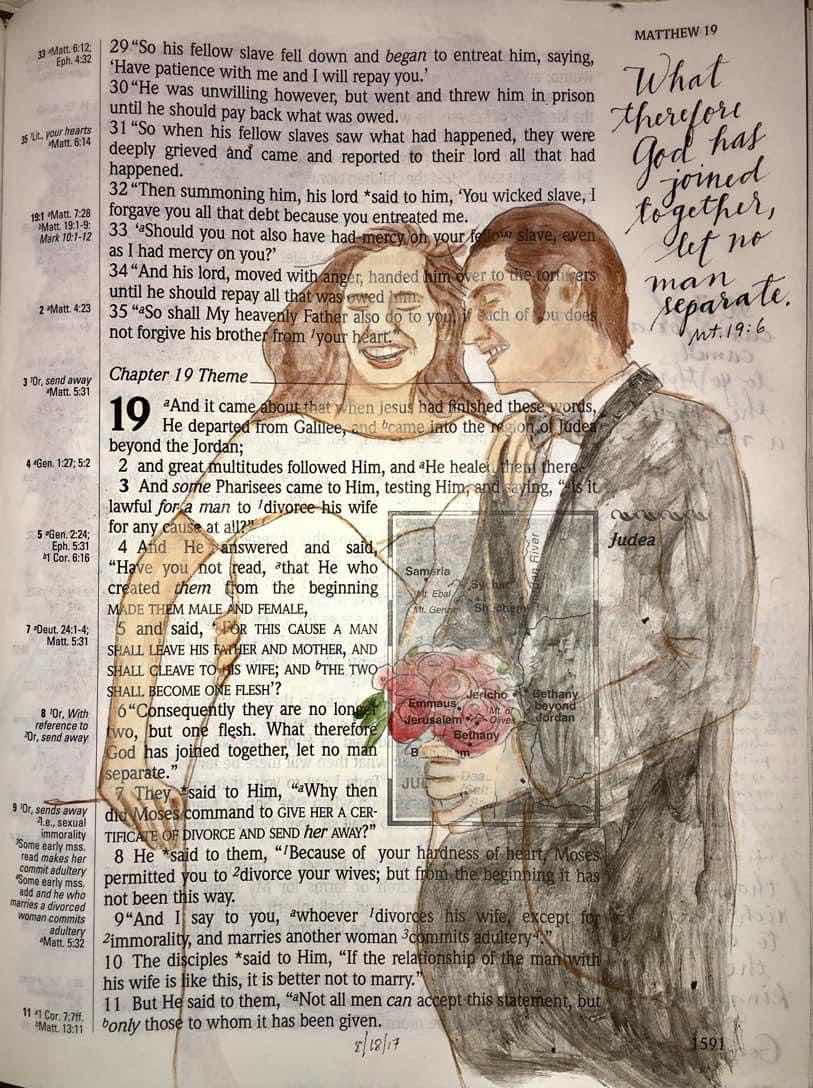 MATTHEW 19
33 aMatt. 6:12;
Eph. 4:32
35 1Lit., your hearts
aMatt. 6:14
19:1 aMatt. 7:28
bMatt. 19:1-9:
Mark 10:1-12
2 aMatt. 4:23
3 1Or, send away
aMatt. 5:31
4 aGen. 1:27; 5:2
5 aGen. 2:24;
Eph. 5:31
b1 Cor. 6:16
7 aDeut. 24:1-4;
Matt. 5:31
8 1Or, With
reference to
2Or, send away
9 1Or, sends away
2I.e., sexual
immorality
3Some early mss.
read makes her
commit adultery
4Some early mss.
add and he who
marries a divorced
woman commits
adultery
aMatt. 5:32
11 a1 Cor. 7:7ff.
bMatt. 13:11
29 “So his fellow slave fell down and began to entreat him, saying,
‘Have patience with me and I will repay you.’
30 “He was unwilling however, but went and threw him in prison
until he should pay back what was owed.
31 “So when his fellow slaves saw what had happened, they were
deeply grieved and came and reported to their lord all that had
happened.
32 “Then summoning him, his lord *said to him, ‘You wicked slave, I
forgave you all that debt because you entreated me.
33 ‘aShould you not also have had mercy on your fellow slave, even
as I had mercy on you?’
34 “And his lord, moved with anger, handed him over to the torturers
until he should repay all that was owed him.
35 “aSo shall My heavenly Father also do to you, if each of you does
not forgive his brother from 1your heart.”
Chapter 19 Theme
19 aAnd it came about that when Jesus had finished these words,
He departed from Galilee, and bcame into the region of Judea
beyond the Jordan;
2 and great multitudes followed Him, and aHe healed them there.
3 And some Pharisees came to Him, testing Him, and saying, “aIs it
lawful for a man to 1divorce his wife
for any cause at all?”
4 And He answered and said,
“Have you not read, athat He who
created them from the beginning
MADE THEM MALE AND FEMALE,
5 and said, ‘aFOR THIS CAUSE A MAN
SHALL LEAVE HIS FATHER AND MOTHER, AND
SHALL CLEAVE TO HIS WIFE; AND bTHE TWO
SHALL BECOME ONE FLESH’?
6 “Consequently they are no longer
two, but one flesh. What therefore
God has joined together, let no man
separate.”
7 They *said to Him, “aWhy then
did Moses command to GIVE HER A CER-
TIFICATE OF DIVORCE AND SEND her AWAY?”
8 He *said to them, “1Because of your hardness of heart, Moses
permitted you to 2divorce your wives; but from the beginning it has
not been this way.
9 “And I say to you, awhoever 1divorces his wife, except for
2immorality, and marries another woman 3commits adultery4.”
10 The disciples *said to Him, “If the relationship of the man with
his wife is like this, it is better not to marry.”
11 But He said to them, “aNot all men can accept this statement, but
bonly those to whom it has been given.
What
therefore
God has
joined
together,
let no
man
separate.
Mt. 19:6
Judea
Samaria
Mt. Ebal
Sychar
Mt. Gerizim
Shechem
River
Jericho
Emmaus
Mt. of
Olives
Jerusalem
Bethany
Bethany
beyond
Jordan
8/18/17
1591